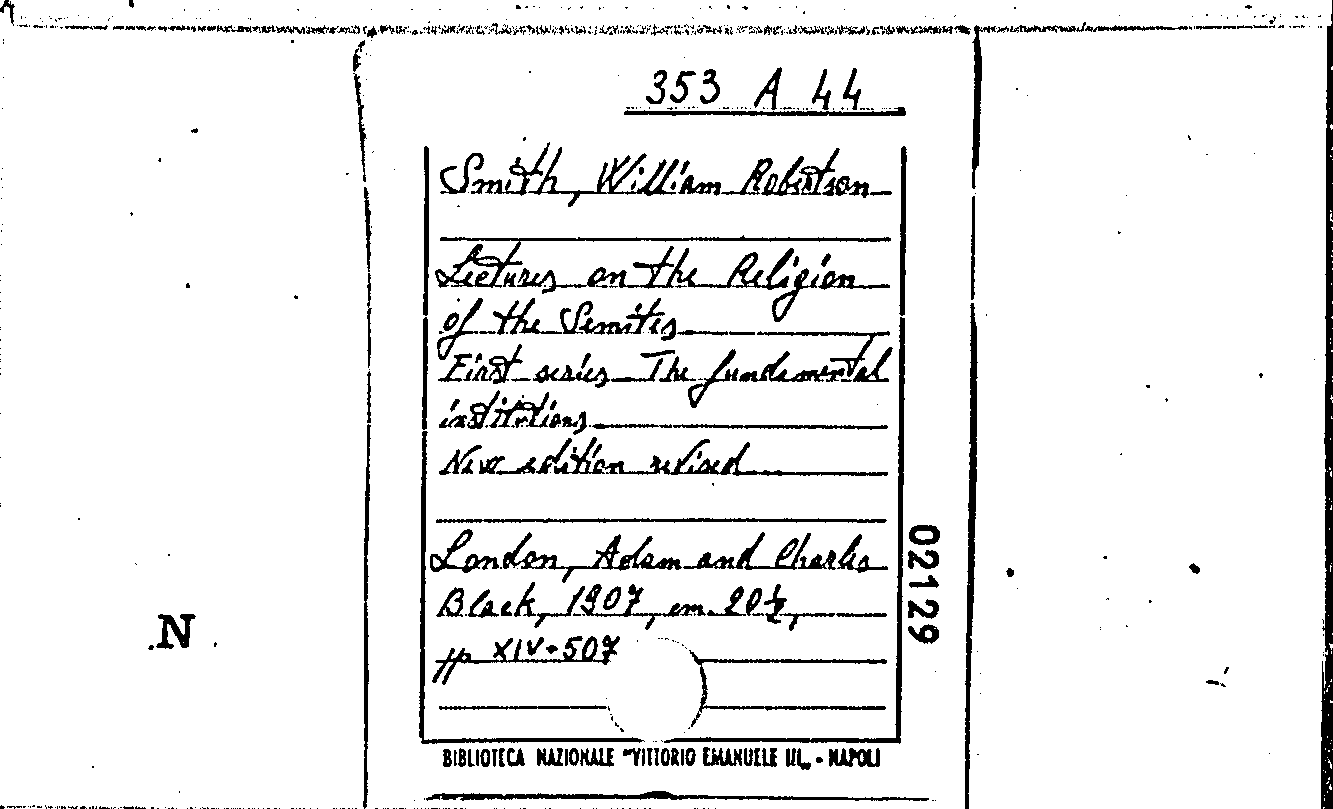 353 A 44
Smith, William Robertson
Lectures on the Religion
of the Semites
First series The fundamental
institutions
New edition revised
London, Adam and Charles
Black, 1907, cm. 20½,
pp XIV-507
02129
N
BIBLIOTECA NAZIONALE "VITTORIO EMANUELE III„ - NAPOLI